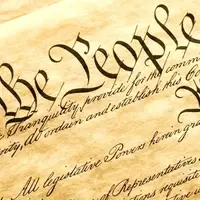 the People
Tranquility, provide for the comm
ity, do ordain and establish this Co
All legislative Powers herein gran
of Representatives